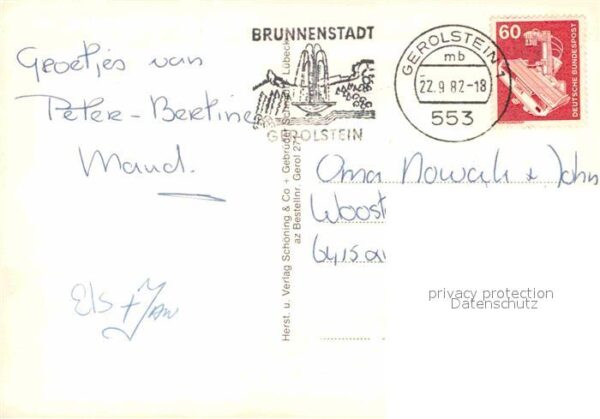 Groetjes van
Peter-Bertine
Maud.
Els + Jan
Herst. u. Verlag Schöning & Co + Gebrüder Schmidt, Lübeck
az Bestellnr. Gerol 27
BRUNNENSTADT
GEROLSTEIN
GEROLSTEIN 1
mb
22.9.82-18
553
60
DEUTSCHE BUNDESPOST
Oma Nowak + John
Woost
6415
privacy protection
Datenschutz